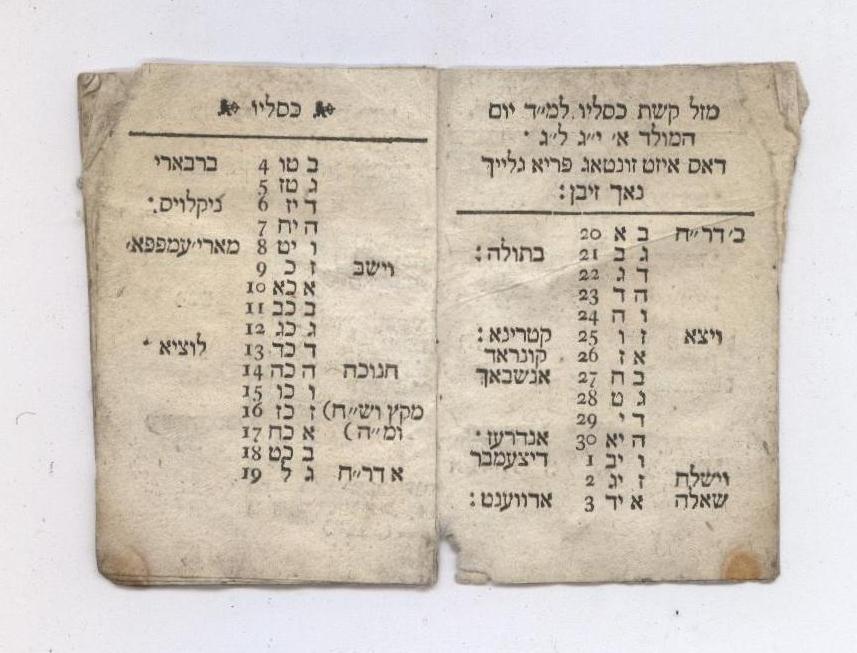 מזל קשת כסליו למ״ד יום
המולד א׳ י״ג ל״ג ׳
דאס איזט זונטאג פריא גלייך
נאך זיבן:
ב׳ דר״ח ב א 20
ג ב 21 בתולה:
ד ג 22
ה ד 23
ו ה 24
ויצא ז ו 25 קטרינא:
א ז 26 קונראד
ב ח 27 אנשבאך
ג ט 28
ד י 29
ה יא 30 אנדרעז ׳
ו יב 1 דיצעמבר
וישלח ז יג 2
שאלה א יד 3 אדווענט:
כסליו
ב טו 4 ברבארי
ג טז 5
ד יז 6 ניקלויס:
ה יח 7
ו יט 8 מארי׳עמפפא׳
וישב ז כ 9
א כא 10
ב כב 11
ג כג 12
ד כד 13 לוציא ׳
חנוכה ה כה 14
ו כו 15
מקץ וש״ח) ז כז 16
ומ״ה) א כח 17
ב כט 18
א דר״ח ג ל 19